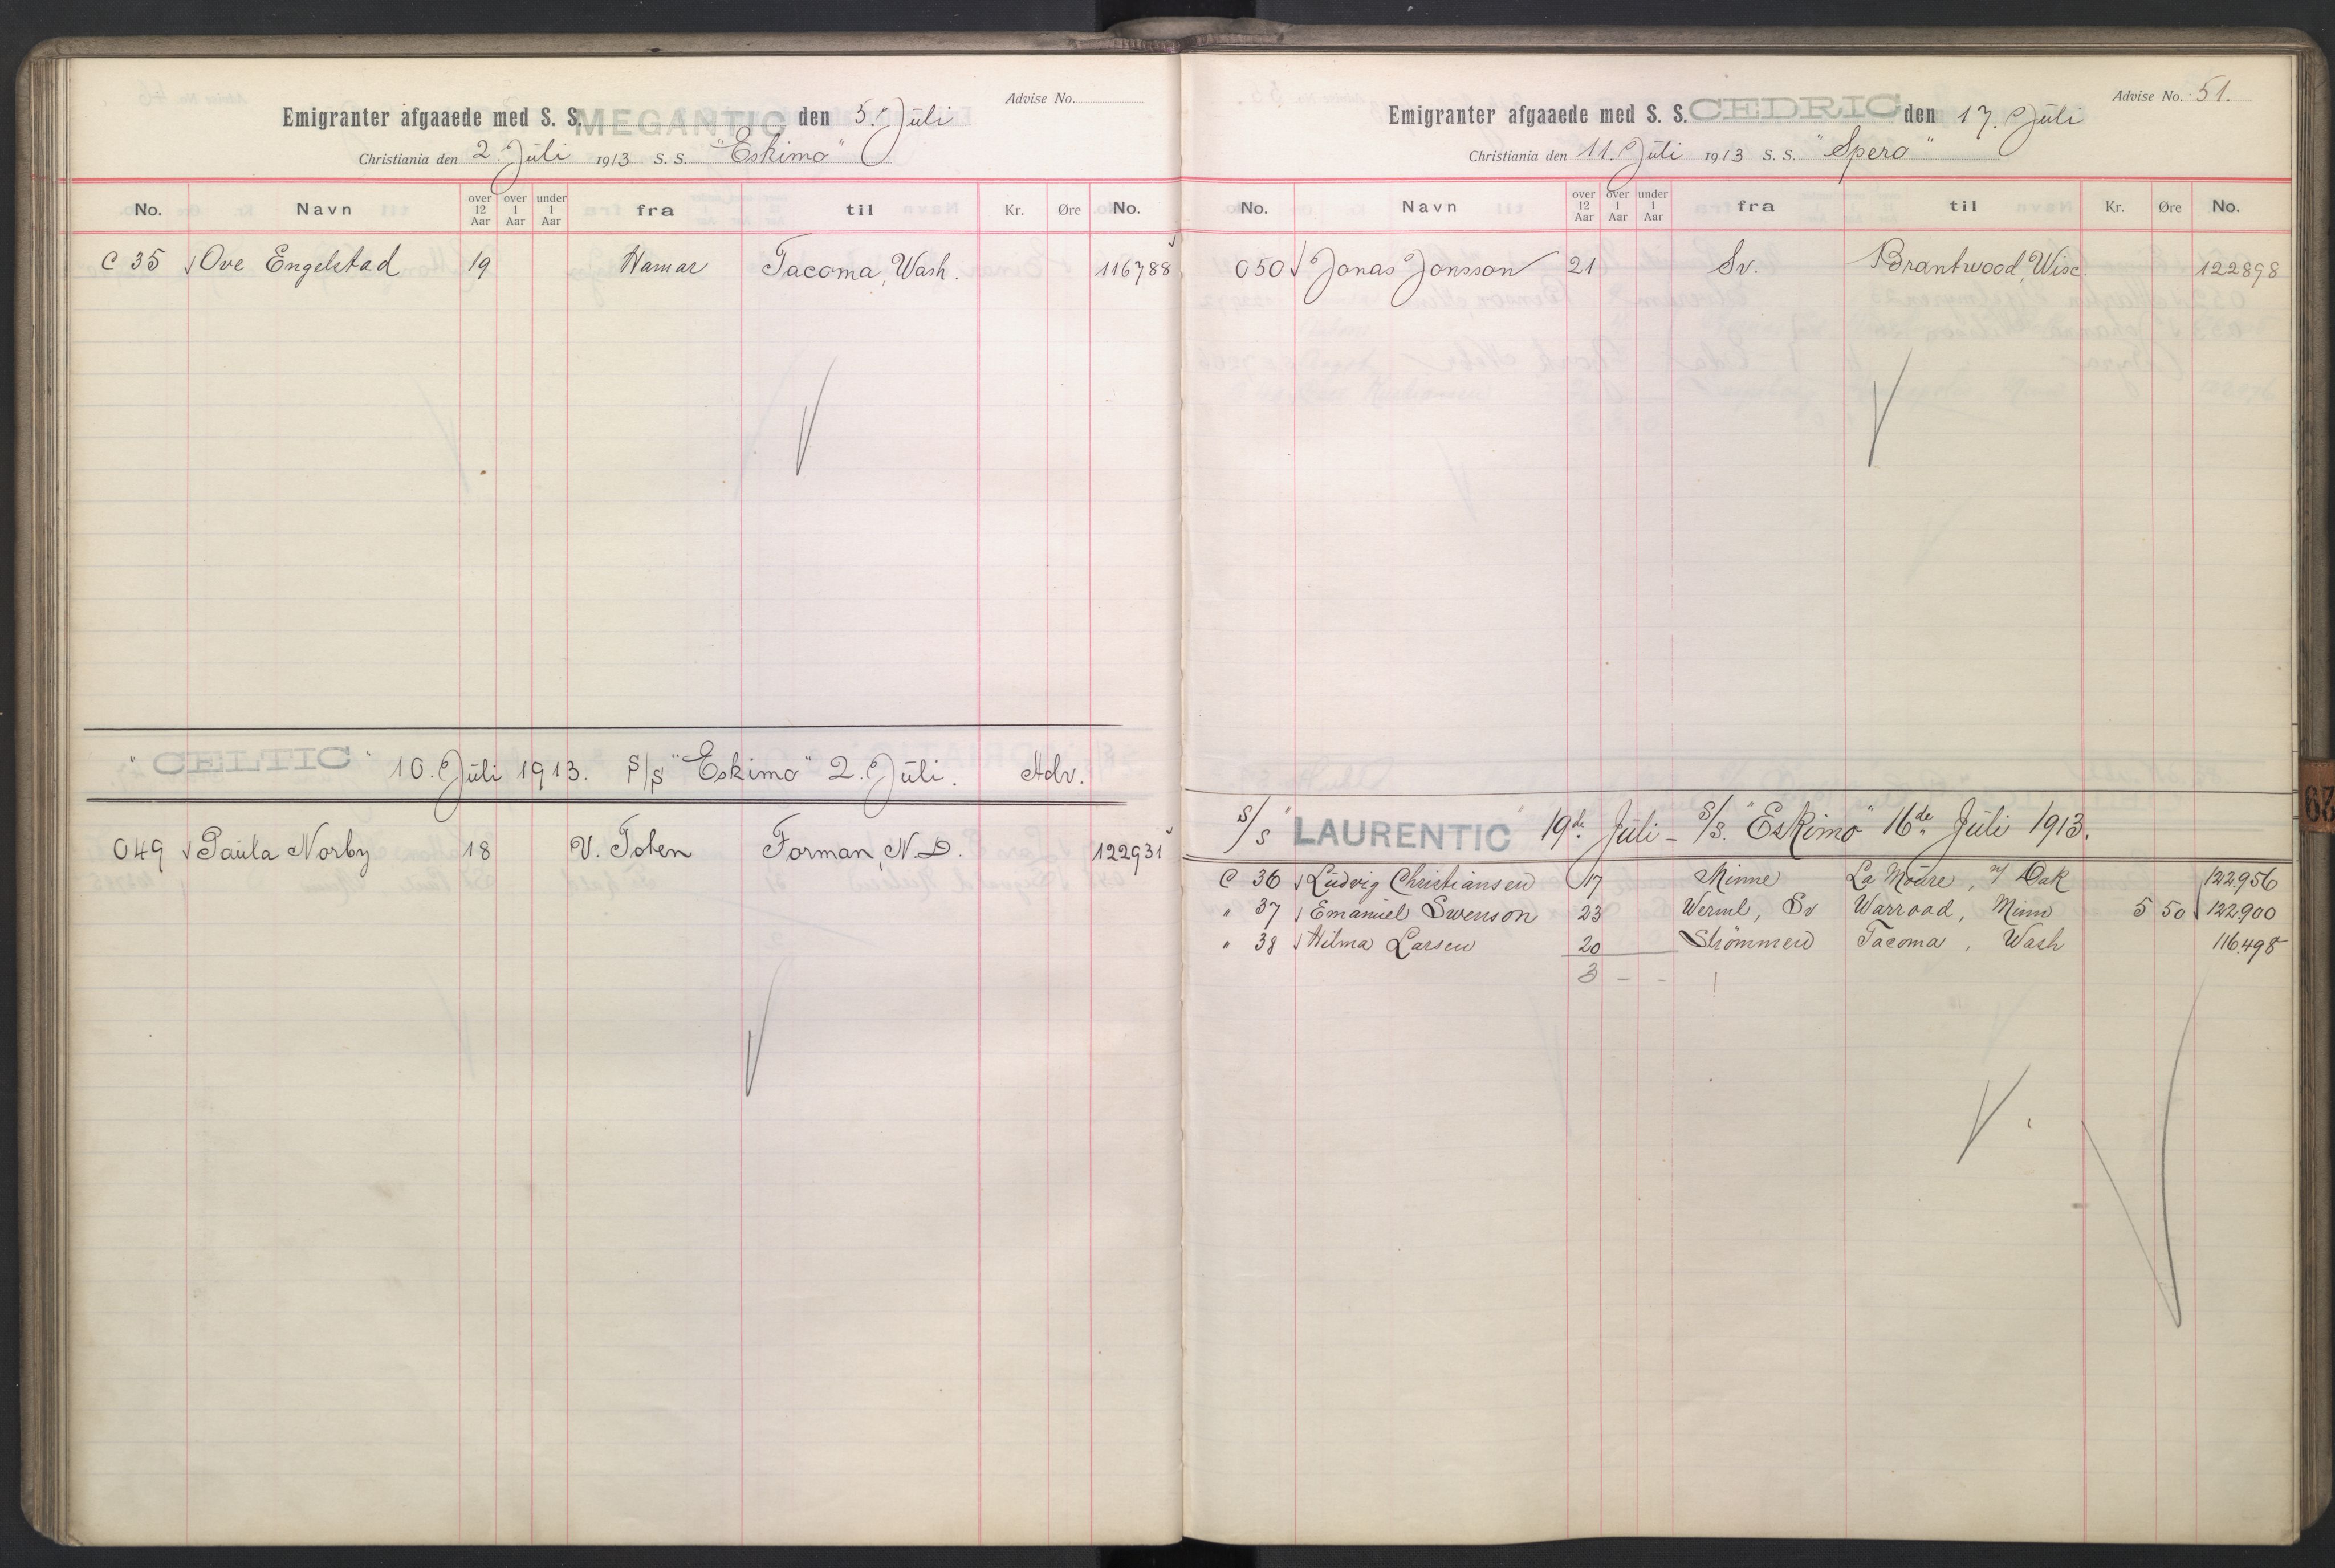 Advise No.
Emigranter afgaaede med S. S. MEGANTIC den 5. Juli
Christiania den 2. Juli 1913 S. S. "Eskimo"
No. Navn over 12 Aar over 1 Aar under 1 Aar fra til Kr. Øre No.
C 35 Ove Engelstad 19 Hamar Tacoma, Wash. 116788
"CELTIC" 10. Juli 1913. S/S "Eskimo" 2. Juli. Adv.
049 Paula Norby 18 V. Toten Forman, N.D. 122931
Advise No. 51.
Emigranter afgaaede med S. S. CEDRIC den 17. Juli
Christiania den 11. Juli 1913 S. S. "Spero"
No. Navn over 12 Aar over 1 Aar under 1 Aar fra til Kr. Øre No.
050 Jonas Jonsson 21 Sv. Brantwood, Wisc. 122898
S/S "LAURENTIC" 19de Juli - S/S. "Eskimo" 16de Juli 1913.
C 36 Ludvig Christiansen 17 Minne La Moure, N/ Dak 122956
" 37 Emanuel Swenson 23 Werml, Sv Warroad, Minn 5 50 122900
" 38 Hilma Larsen 20 Strömmen Tacoma, Wash 116498
3 - -